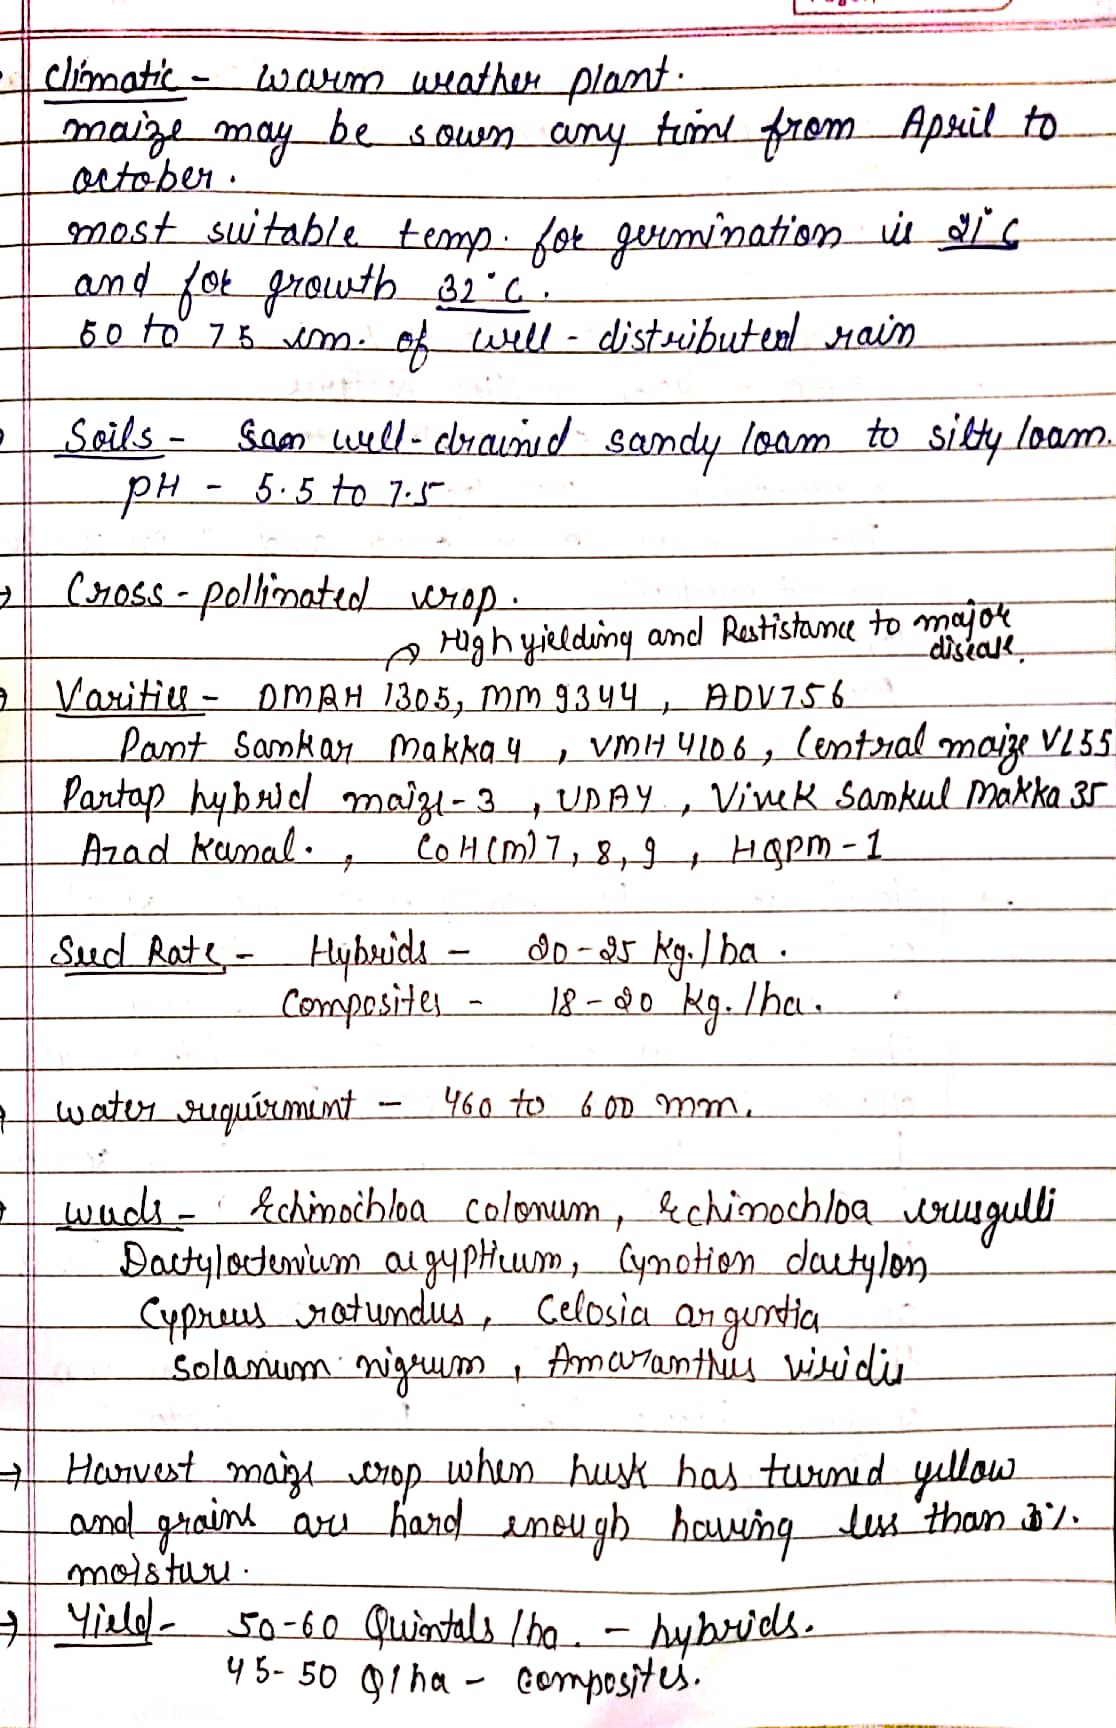 Climatic - warm weather plant.
maize may be sown any time from April to
october.
most suitable temp. for germination is 21°C
and for growth 32°C.
50 to 75 cm. of well-distributed rain
Soils - well-drained sandy loam to silty loam.
pH - 5.5 to 7.5
Cross-pollinated crop.
→ High yielding and Restistance to major
disease.
→ Varities - DMRH 1305, MM 9344, ADV756
Pant Samkar Makka 4, VMH 4106, Central maize VL55
Partap hybrid maize-3, UDAY, Vivek Samkul Makka 35
Azad Kamal., CoH(m)7, 8, 9, HQPM-1
Seed Rate - Hybrids - 20-25 kg./ha.
Composites - 18-20 kg./ha.
→ water requirment - 460 to 600 mm.
→ weeds - Echinochloa colonum, Echinochloa crusgulli
Dactyloctenium aegyptieum, Cynotion dactylon
Cypreus rotundus, Celosia argentia
Solanum nigrum, Amaranthus viridis
→ Harvest maize crop when husk has turned yellow
and grains are hard enough having less than %.
moisture.
→ Yield - 50-60 Quintals/ha. - hybrids.
45-50 Q/ha - composites.